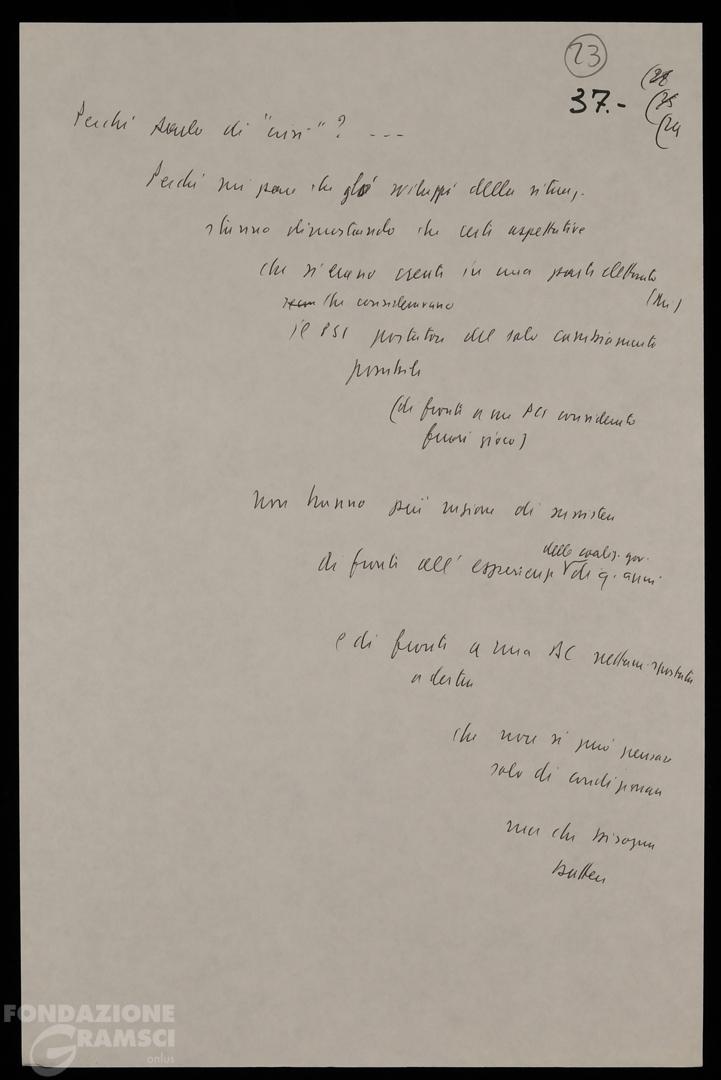 23
37.-
(28
(25
(24
Perché parlo di "crisi"? ---
Perché mi pare che gli sviluppi della situaz.
stanno dimostrando che certe aspettative
che si erano create in una parte dell'elettorato
che consideravano
il PSI portatore del solo cambiamento
possibile
(di fronte a un PCI considerato
fuori gioco)
non hanno più ragione di sussistere
delle coaliz. gov.
di fronte all'esperienza di q. anni
e di fronte a una DC nettam. spostata
a destra
che non si può pensare
solo di condizionare
ma che bisogna
battere
FONDAZIONE
GRAMSCI
onlus